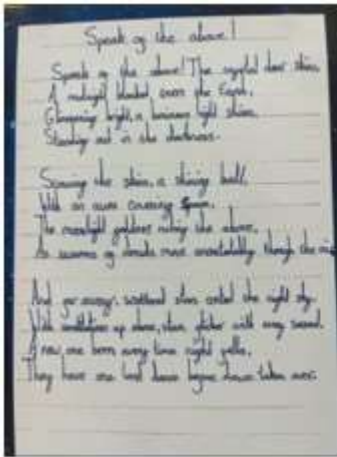 Speak of the above!
Speak of the above! The crystal clear skies,
A midnight blanket over the Earth,
Glimmering bright, a luminous light shines,
Standing out in the darkness.
the skies, a shining ball,
With an aura covering
The moonlight goddess ruling the above,
As swarms of clouds move through the
And far away, scattered stars coated the night sky.
With constellations up above, stars flicker with every second.
A new one born every time night falls,
They have one last dance before dawn takes over.